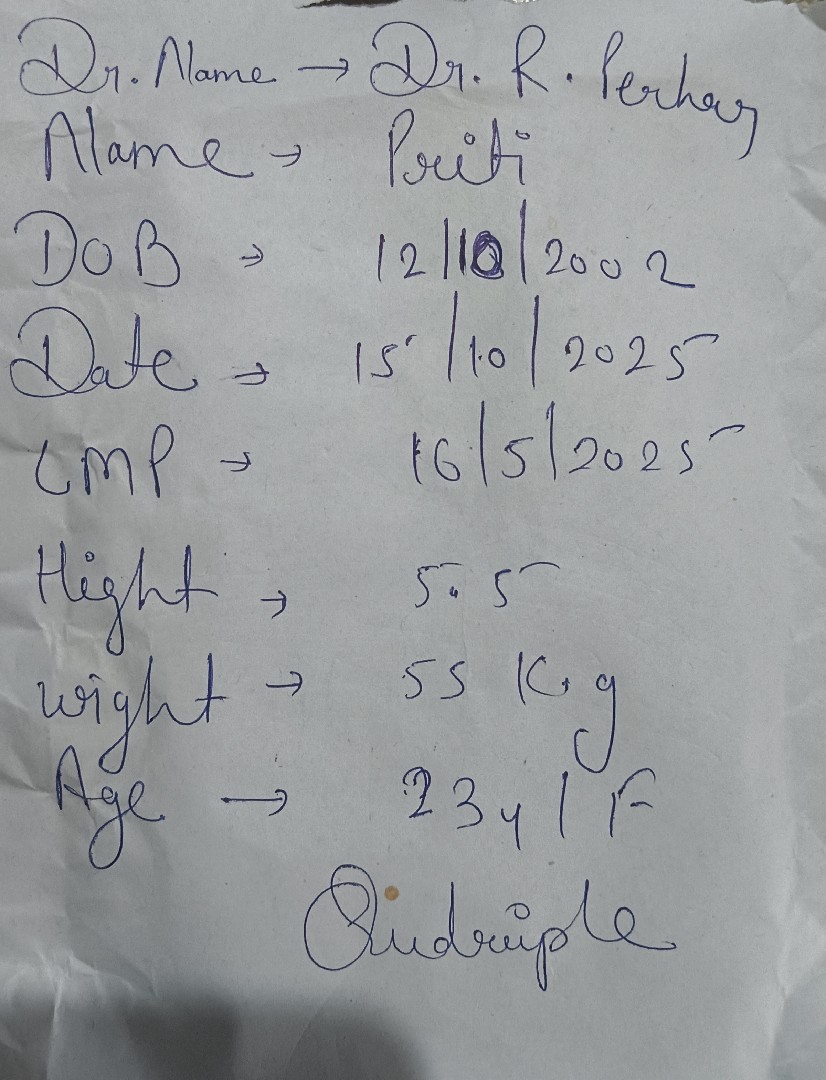 Dr. Name → Dr. R. Perhar
Name → Priti
DOB → 12/10/2002
Date → 15/10/2025
LMP → 16/5/2025
Hight → 5.5
wight → 55 Kg
Age → 23y/F
Quidruple